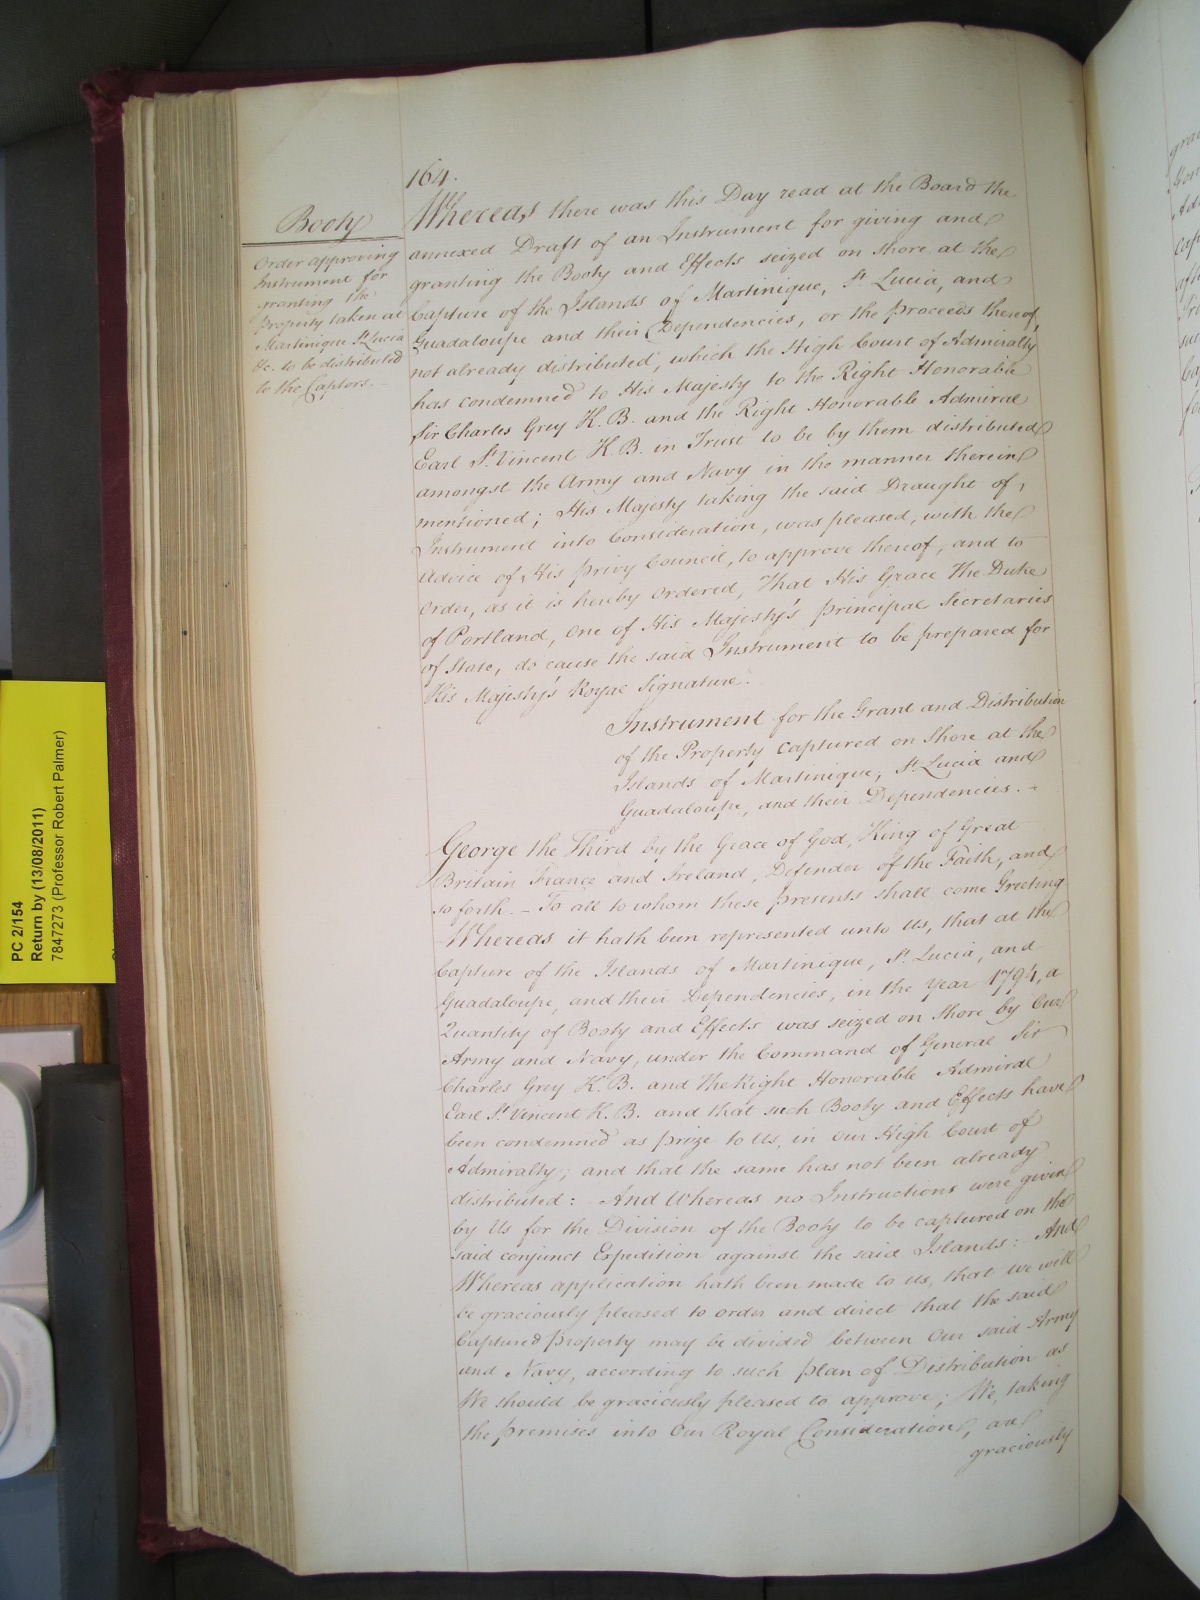 164.
Booty
Order approving
Instrument for
granting the
Property taken at
Martinique St. Lucia
&c. to be distributed
to the Captors.
Whereas there was this Day read at the Board the
annexed Draft of an Instrument for giving and
granting the Booty and Effects seized on shore at the
Capture of the Islands of Martinique, St. Lucia, and
Guadaloupe and their Dependencies, or the proceeds thereof,
not already distributed, which the High Court of Admiralty
has condemned to His Majesty to the Right Honorable
Sir Charles Grey K.B. and the Right Honorable Admiral
Earl St. Vincent K.B. in Trust to be by them distributed
amongst the Army and Navy in the manner therein
mentioned; His Majesty taking the said Draught of
Instrument into Consideration, was pleased, with the
Advice of His Privy Council, to approve thereof, and to
Order, as it is hereby Ordered, That His Grace the Duke
of Portland, One of His Majesty's Principal Secretaries
of State, do cause the said Instrument to be prepared for
His Majesty's Royal Signature.
Instrument for the Grant and Distribution
of the Property captured on Shore at the
Islands of Martinique, St. Lucia and
Guadaloupe, and their Dependencies. -
George the Third by the Grace of God, King of Great
Britain France and Ireland, Defender of the Faith, and
so forth. - To all to whom these presents shall come Greeting
Whereas it hath been represented unto Us, that at the
Capture of the Islands of Martinique, St. Lucia, and
Guadaloupe, and their Dependencies, in the Year 1794, a
Quantity of Booty and Effects was seized on Shore by Our
Army and Navy, under the Command of General Sir
Charles Grey K.B. and the Right Honorable Admiral
Earl St. Vincent K.B. and that such Booty and Effects have
been condemned as prize to Us, in Our High Court of
Admiralty; and that the same has not been already
distributed: And Whereas no Instructions were given
by Us for the Division of the Booty to be captured on the
said conjunct Expedition against the said Islands: And
Whereas application hath been made to Us, that We will
be graciously pleased to order and direct that the said
Captured Property may be divided between Our said Army
and Navy, according to such plan of Distribution as
We should be graciously pleased to approve; We, taking
the premises into Our Royal Consideration, are
graciously
PC 2/154
Return by (13/08/2011)
7847273 (Professor Robert Palmer)